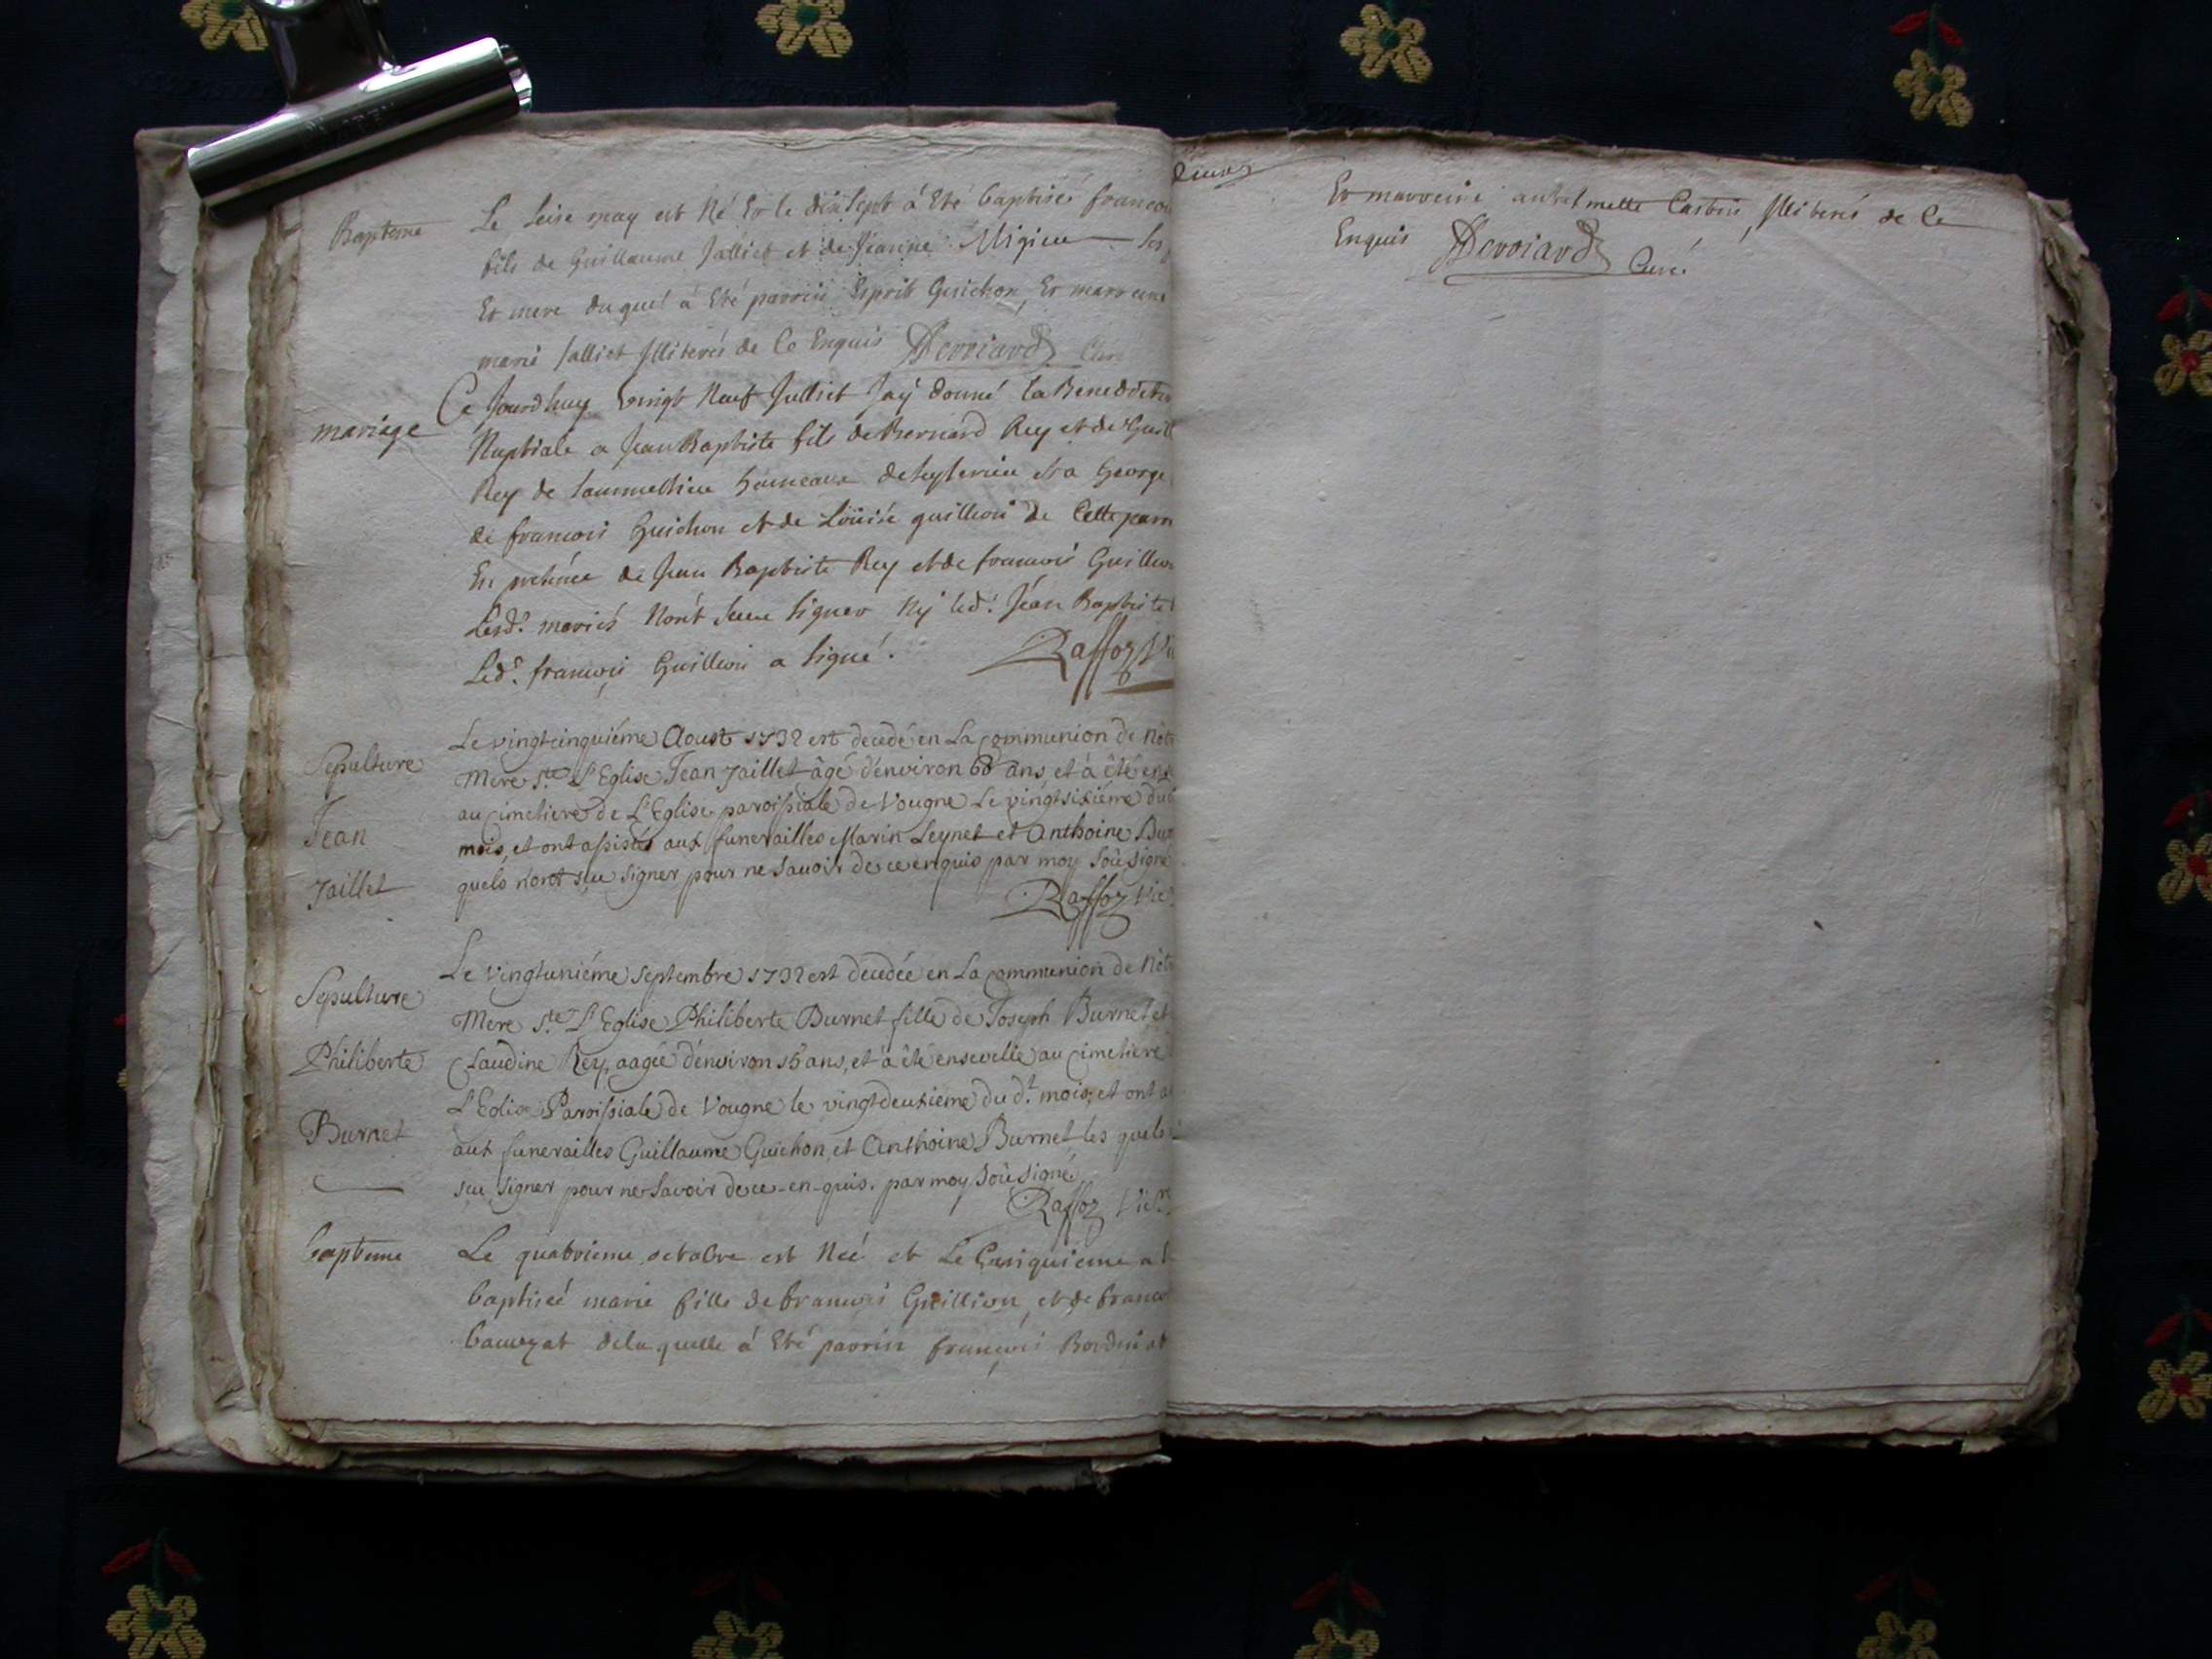 Bapteme
Le seise may est Né Et le dix sept á Eté baptisé francoi
fils de Guillaume Jalliet et de Jeanne Migieu ses
Et mere du quel á Eté parrin Esprit Guichon, Et marreine
marie Jalliet Jlliterés de Ce Enquis Dervoiard Cur
mariage
Ce Jourdhuy vingt Neuf Julliet Jaÿ donné la Benedictio
Nuptiale a Jean Baptiste fils de Bernard Rey et de Guill
Rey de hameaux de et a George
de francois Guichon et de Loüise guillion de Cette parr
En presence de Jean Baptiste Rey et de francois Guillion
Lesd.s mariés Nont sceu signer Nÿ led.t Jéan Baptiste
Led.t françois Guillion a signé. Raffoz Vi
Sepulture
Jean
Jaillet
Le vingtcinquiéme Aoust 1732 est decedé en La Communion de Nôt
Mere S.te L'Eglise Jean Jaillet âgé d'environ 68 ans, et à êté ense
au Cimetiere de L'Eglise paroissiale de Vougne Le vingtsixiéme dud
mois, et ont assistés aux funerailles Marin Leynet et Anthoine Bur
quels n'ont sçu signer pour ne Savoir de ce enquis par moy Soûsigné
Raffoz Vic
Sepulture
Philiberte
Burnet
Le vingtuniéme Septembre 1732 est decedée en La Communion de Nôt
Mere S.te L'Eglise Philiberte Burnet fille de Joseph Burnet et
Claudine Rey, aagée d'environ 16 ans, et à êté ensevelie au Cimetiere
L'Eglise Paroissiale de Vougne le vingtdeuxieme du d.t mois, et ont a
aux funerailles Guillaume Guichon, et Anthoine Burnet les quels
sçu signer pour ne Savoir de ce en-quis. par moy Soûsigné
Raffoz Vic.re
bapteme
Le quatrieme octobre est Neé et Le Cinquieme a E
baptiseé marie fille de francois Guillion, et de franco
de la quelle á Eté parrin françois Bordin et
Et marreine mette Castin, Jlliterés de Ce
Enquis Dervoiard Curé